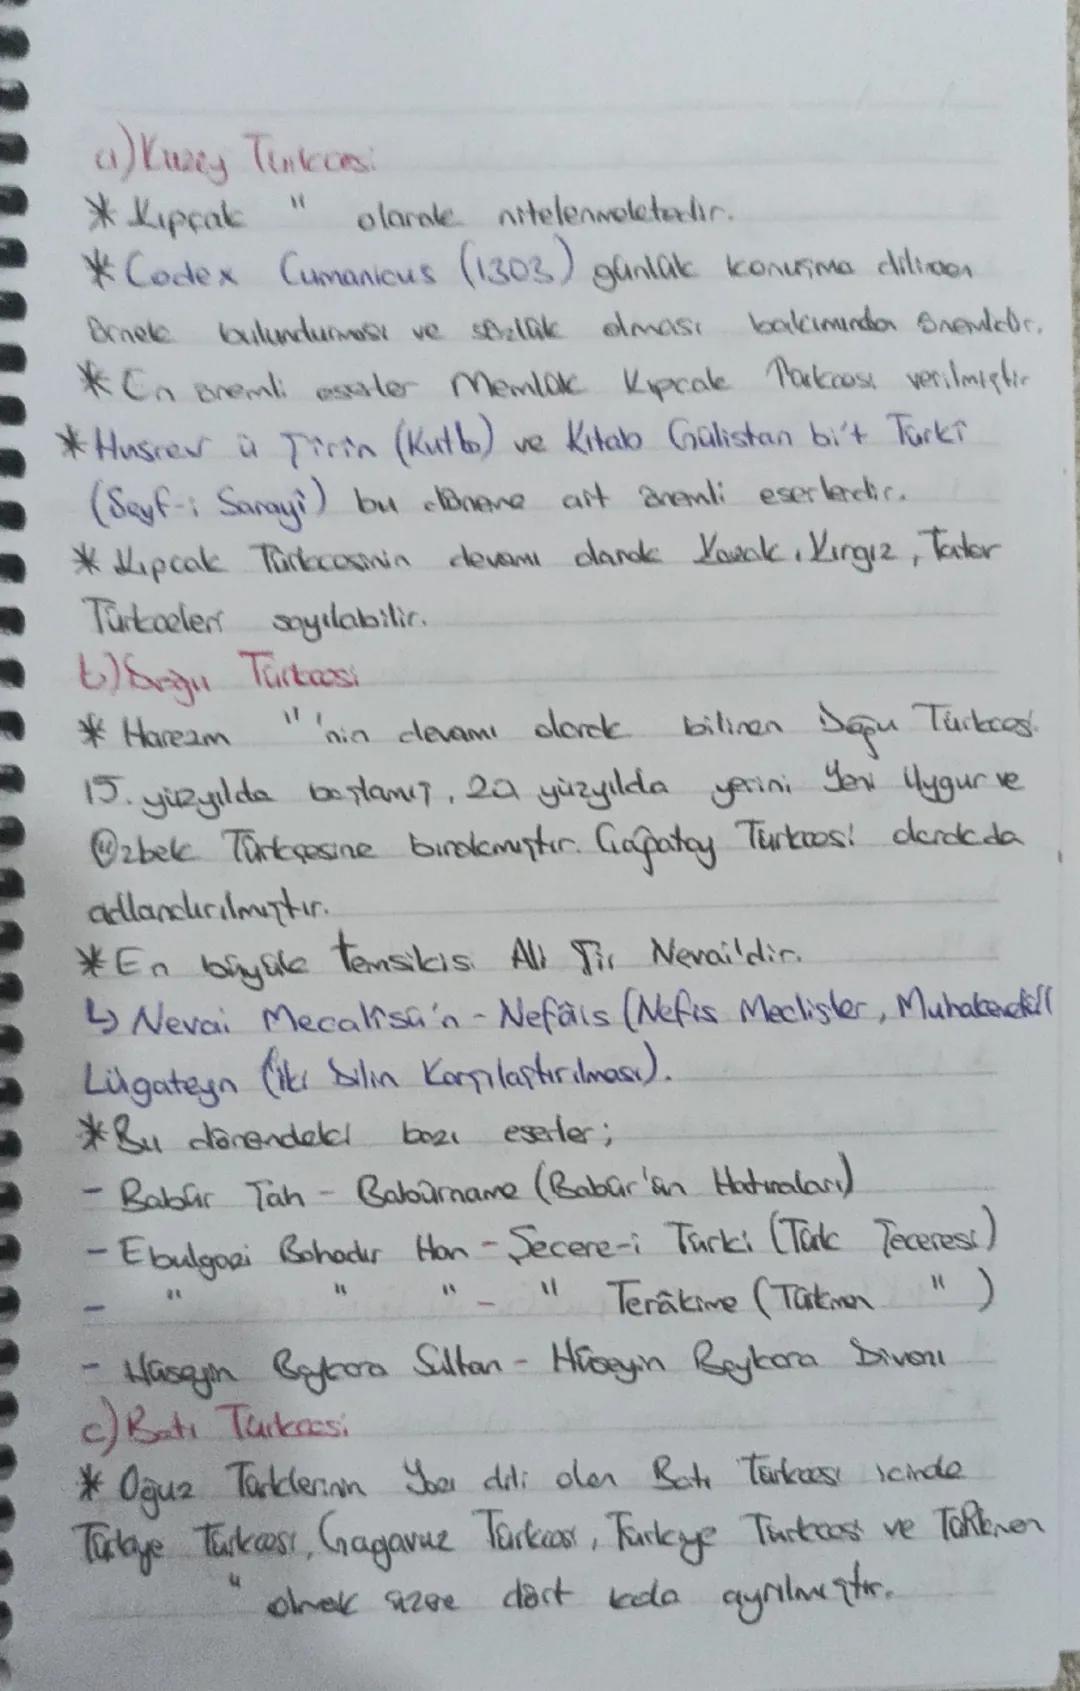 a) Kuzey Türkçesi
* Kıpçak " olarak nitelenmektedir.
* Codex Cumanicus (1303) günlük konuşma dilinden
örnek bulundurması ve sözlük olması bakımından önemlidir.
* En önemli eserler Memlük Kıpçak Türkçesi verilmiştir
* Husrev ü Şirin (Kutb) ve Kitab Gülistan bi't Türkî
(Seyf-i Sarayî) bu döneme ait önemli eserlerdir.
* Kıpçak Türkçesinin devamı olarak Kazak, Kırgız, Tatar
Türkçeleri sayılabilir.
b) Doğu Türkçesi
* Harezm " 'nin devamı olarak bilinen Doğu Türkçesi
15. yüzyılda başlamış, 20. yüzyılda yerini Yeni Uygur ve
Özbek Türkçesine bırakmıştır. Çağatay Türkçesi olarak da
adlandırılmıştır.
* En büyük temsilcisi Ali Şir Nevai'dir.
↳ Nevai Mecalisü'n - Nefâis (Nefis Meclisler, Muhakemetü'l
Lügateyn (İki Dilin Karşılaştırılması).
* Bu dönemdeki bazı eserler;
- Babür Şah - Babürname (Babür'ün Hatıraları)
- Ebulgazi Bahadır Han - Şecere-i Türki (Türk Şeceresi)
- " " " - " Terâkime (Türkmen " )
- Hüseyin Baykara Sultan - Hüseyin Baykara Divanı
c) Batı Türkçesi
* Oğuz Türklerinin Yazı dili olan Batı Türkçesi içinde
Türkiye Türkçesi, Gagavuz Türkçesi, Türkiye Türkçesi ve Türkmen
" olmak üzere dört kola ayrılmıştır.